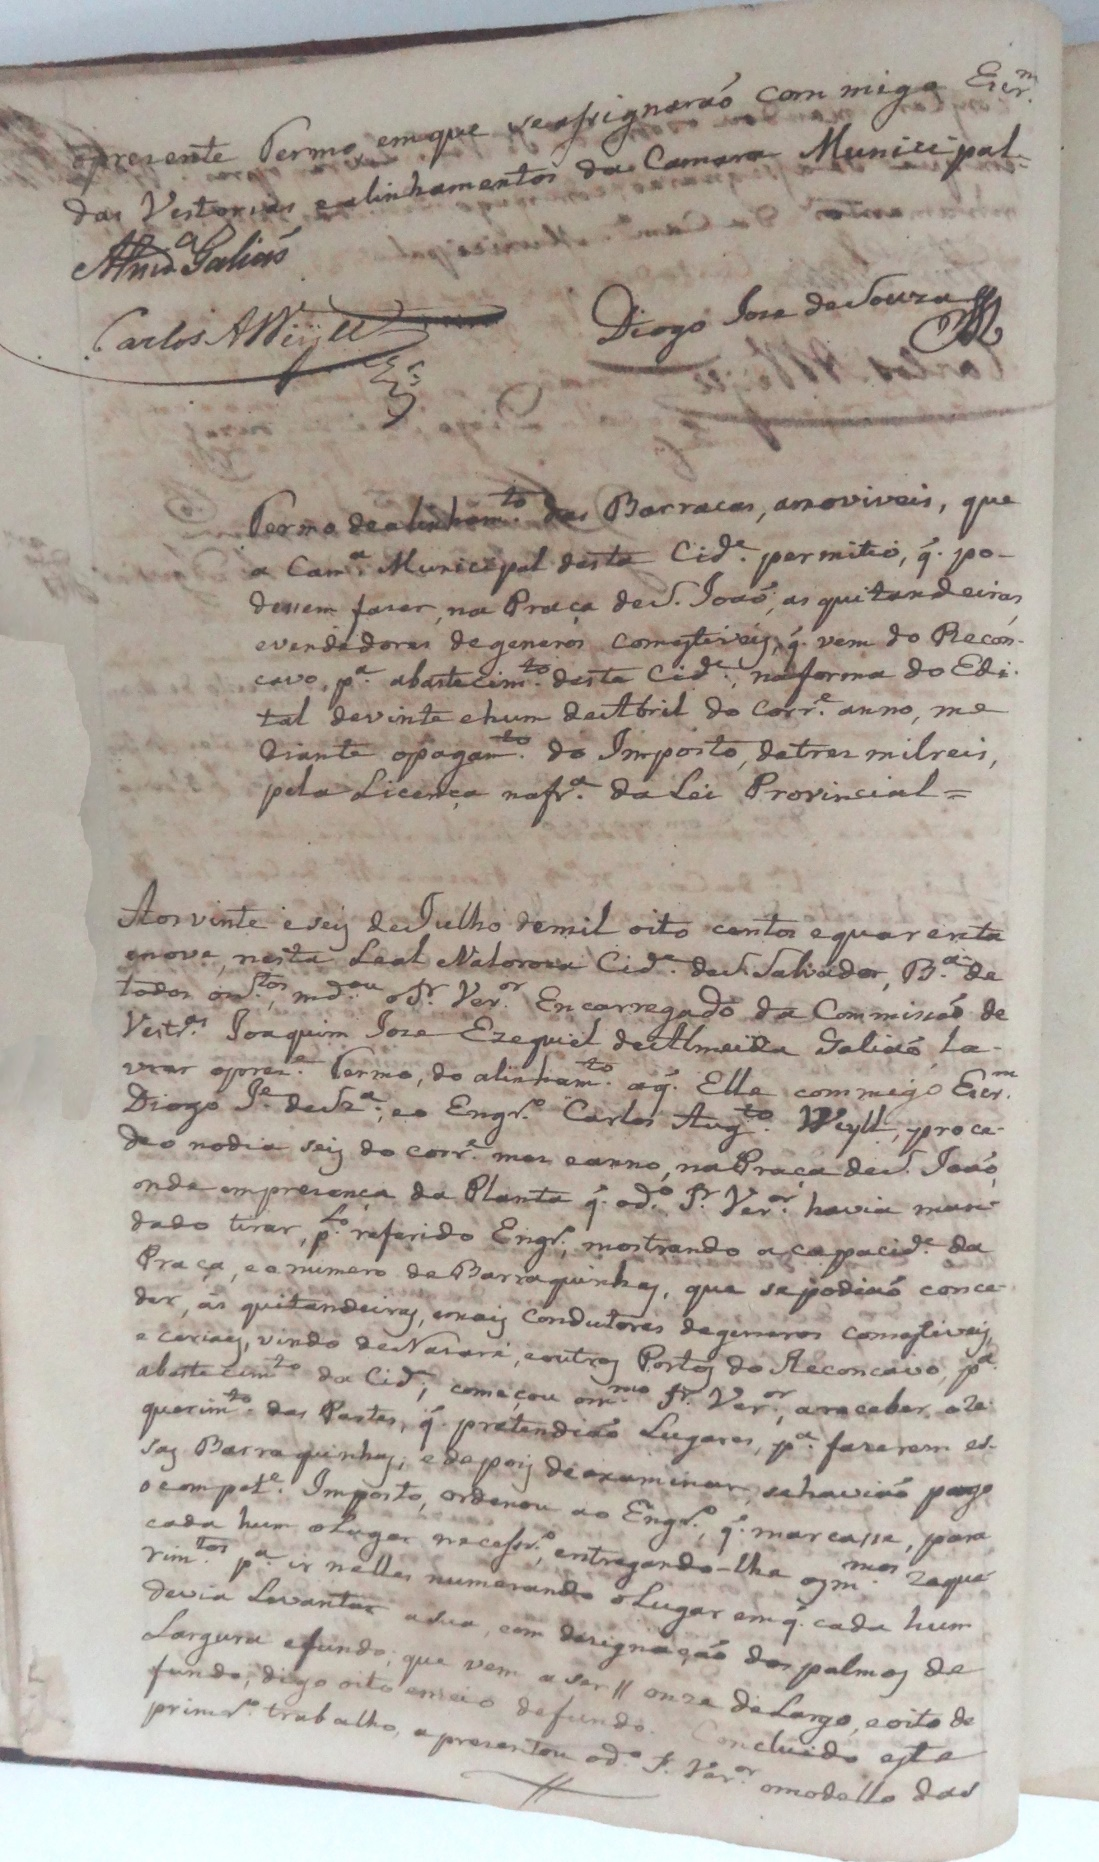 opresente Termo, em que se assignarão com migo Escr.m
das Vestorias e alinhamentos da Camara Municipal=
Alm.da Galião
Carlos A Weyll
Diogo Jose de Souza
Termo de alinham.to das Barracas, amoviveis, que
a Cam.a Municipal desta Cid.e permitio, q̃. po-
dessem faser, na Praça de S. João, as quitandeiras,
e vendedores de generos comestiveis, q̃. vem do Recon-
cavo, p.a abastecim.to desta Cid.e, na forma do Edi-
tal de vinte e hum de Abril do corr.e anno, me
diante o pagam.to do Imposto, de tres mil reis,
pela Licença na fr.a da Lei Provincial =
Aos vinte e seis de Julho de mil oito centos e quarenta
e nove, nesta Leal e Valorosa Cid.e de S. Salvador, B.a de
todos os S.tos, md.ou o Sr. Ver.or Encarregado da Commissão de
Vestr.as Joaquim Jose Ezequiel de Almeida Galião la-
vrar o pres.e Termo, do alinham.to a q̃. Elle com migo Escr.m
Diogo J.e de Sz.a, e o Engr.o Carlos Aug.to Weyll, proce-
deo no dia seis do corr.e mes e anno, na Praça de S. João,
onde em presença da Planta q̃. o d.o Sr. Ver.or havia man-
dado tirar, p.lo referido Engr.o, mostrando a capacid.e da
Praça, e o numero de Barraquinhas, que se podião conce-
der, ás quitandeiras, e mais condutores de generos comestiveis,
e cereaes, vindo de Nasaré, e outros Portos do Reconcavo, p.a
abastecim.to da Cid.e, começou o m.mo Sr. Ver.or, a receber os re
querim.tos das Partes, q̃. pretendião Lugares, p.a fazerem es-
sas Barraquinhas; e depois de examinar, se havião pago
o compet.e Imposto, ordenou ao Engr.o, q̃. marcasse, para
cada hum o Lugar necessr.o, entregando-lhe os m.mos reque
rim.tos p.a ir nelles numerando o Lugar em q̃. cada hum
devia Levantar a sua, com designação dos palmos de
Largura e fundo, que vem a ser // onze de Largo, e oito de
fundo, digo oito e meio de fundo. Concluido este
primr.o trabalho, apresentou o d.o S. Ver.or o modello das